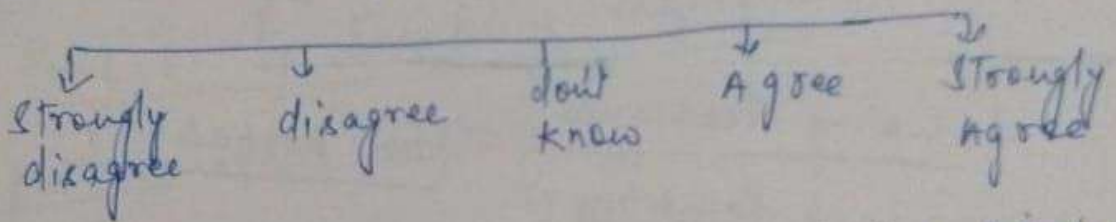 Strongly disagree
disagree
don't know
Agree
Strongly Agree